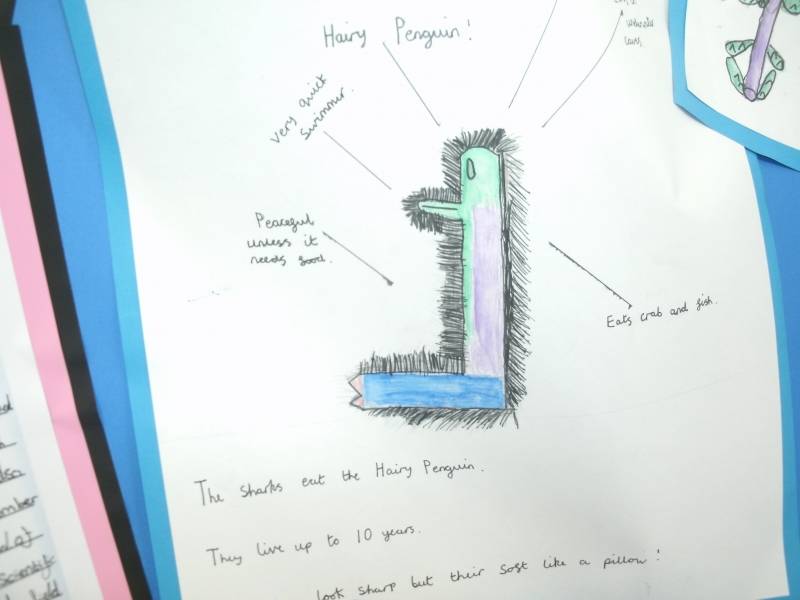 Hairy Penguin!
very quick
swimmer.
Peaceful
unless it
needs food.
Eats crab and fish.
The sharks eat the Hairy Penguin.
They live up to 10 years.
look sharp but their soft like a pillow!
scientific
held